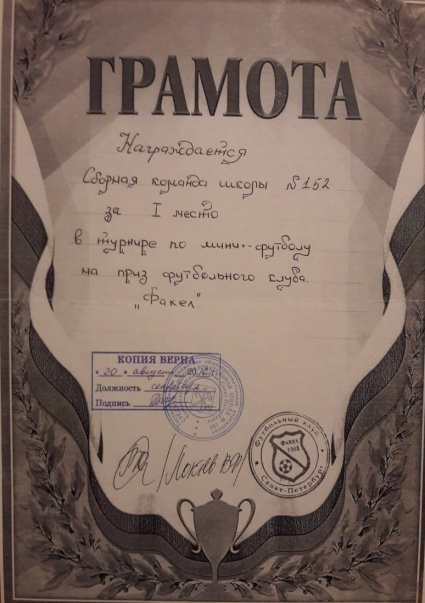 ГРАМОТА
Награждается
Сборная команда школы №152
за I место
в турнире по мини-футболу
на приз футбольного клуба
„Факел".
КОПИЯ ВЕРНА
"20" август 20
Должность секретарь
Подпись
Футбольный клуб
Факел
Санкт-Петербург